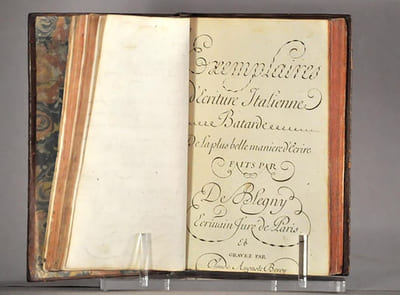 Exemplaires
d'Ecriture Italienne
Batarde
De la plus belle maniere d'écrire
FAITS PAR
De Blegny
Ecrivain Juré de Paris
Et
GRAVEZ PAR
Claude Auguste Berey